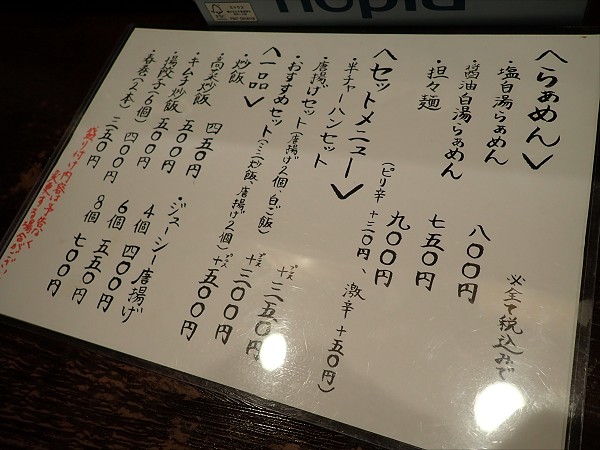 ※全て税込みで
<らぁめん>
・塩白湯らぁめん 八〇〇円
・醤油白湯らぁめん 七五〇円
・担々麺 九〇〇円
(ピリ辛 +二〇円、激辛 +五〇円)
<セットメニュー>
・半チャーハンセット プラス+二五〇円
・唐揚げセット(唐揚げ2個、白ご飯) プラス+三〇〇円
・おすすめセット(ミニ炒飯、唐揚げ2個) プラス+五〇〇円
<一品>
・炒飯 四五〇円
・高菜炒飯 五〇〇円
・キムチ炒飯 五〇〇円
・揚餃子(6個) 四〇〇円
・春巻(2本) 三五〇円
・ジューシー唐揚げ
4個 四〇〇円
6個 五五〇円
8個 七〇〇円
盛り付け内容は予告なく
変更する場合がござい
nepia
FSC